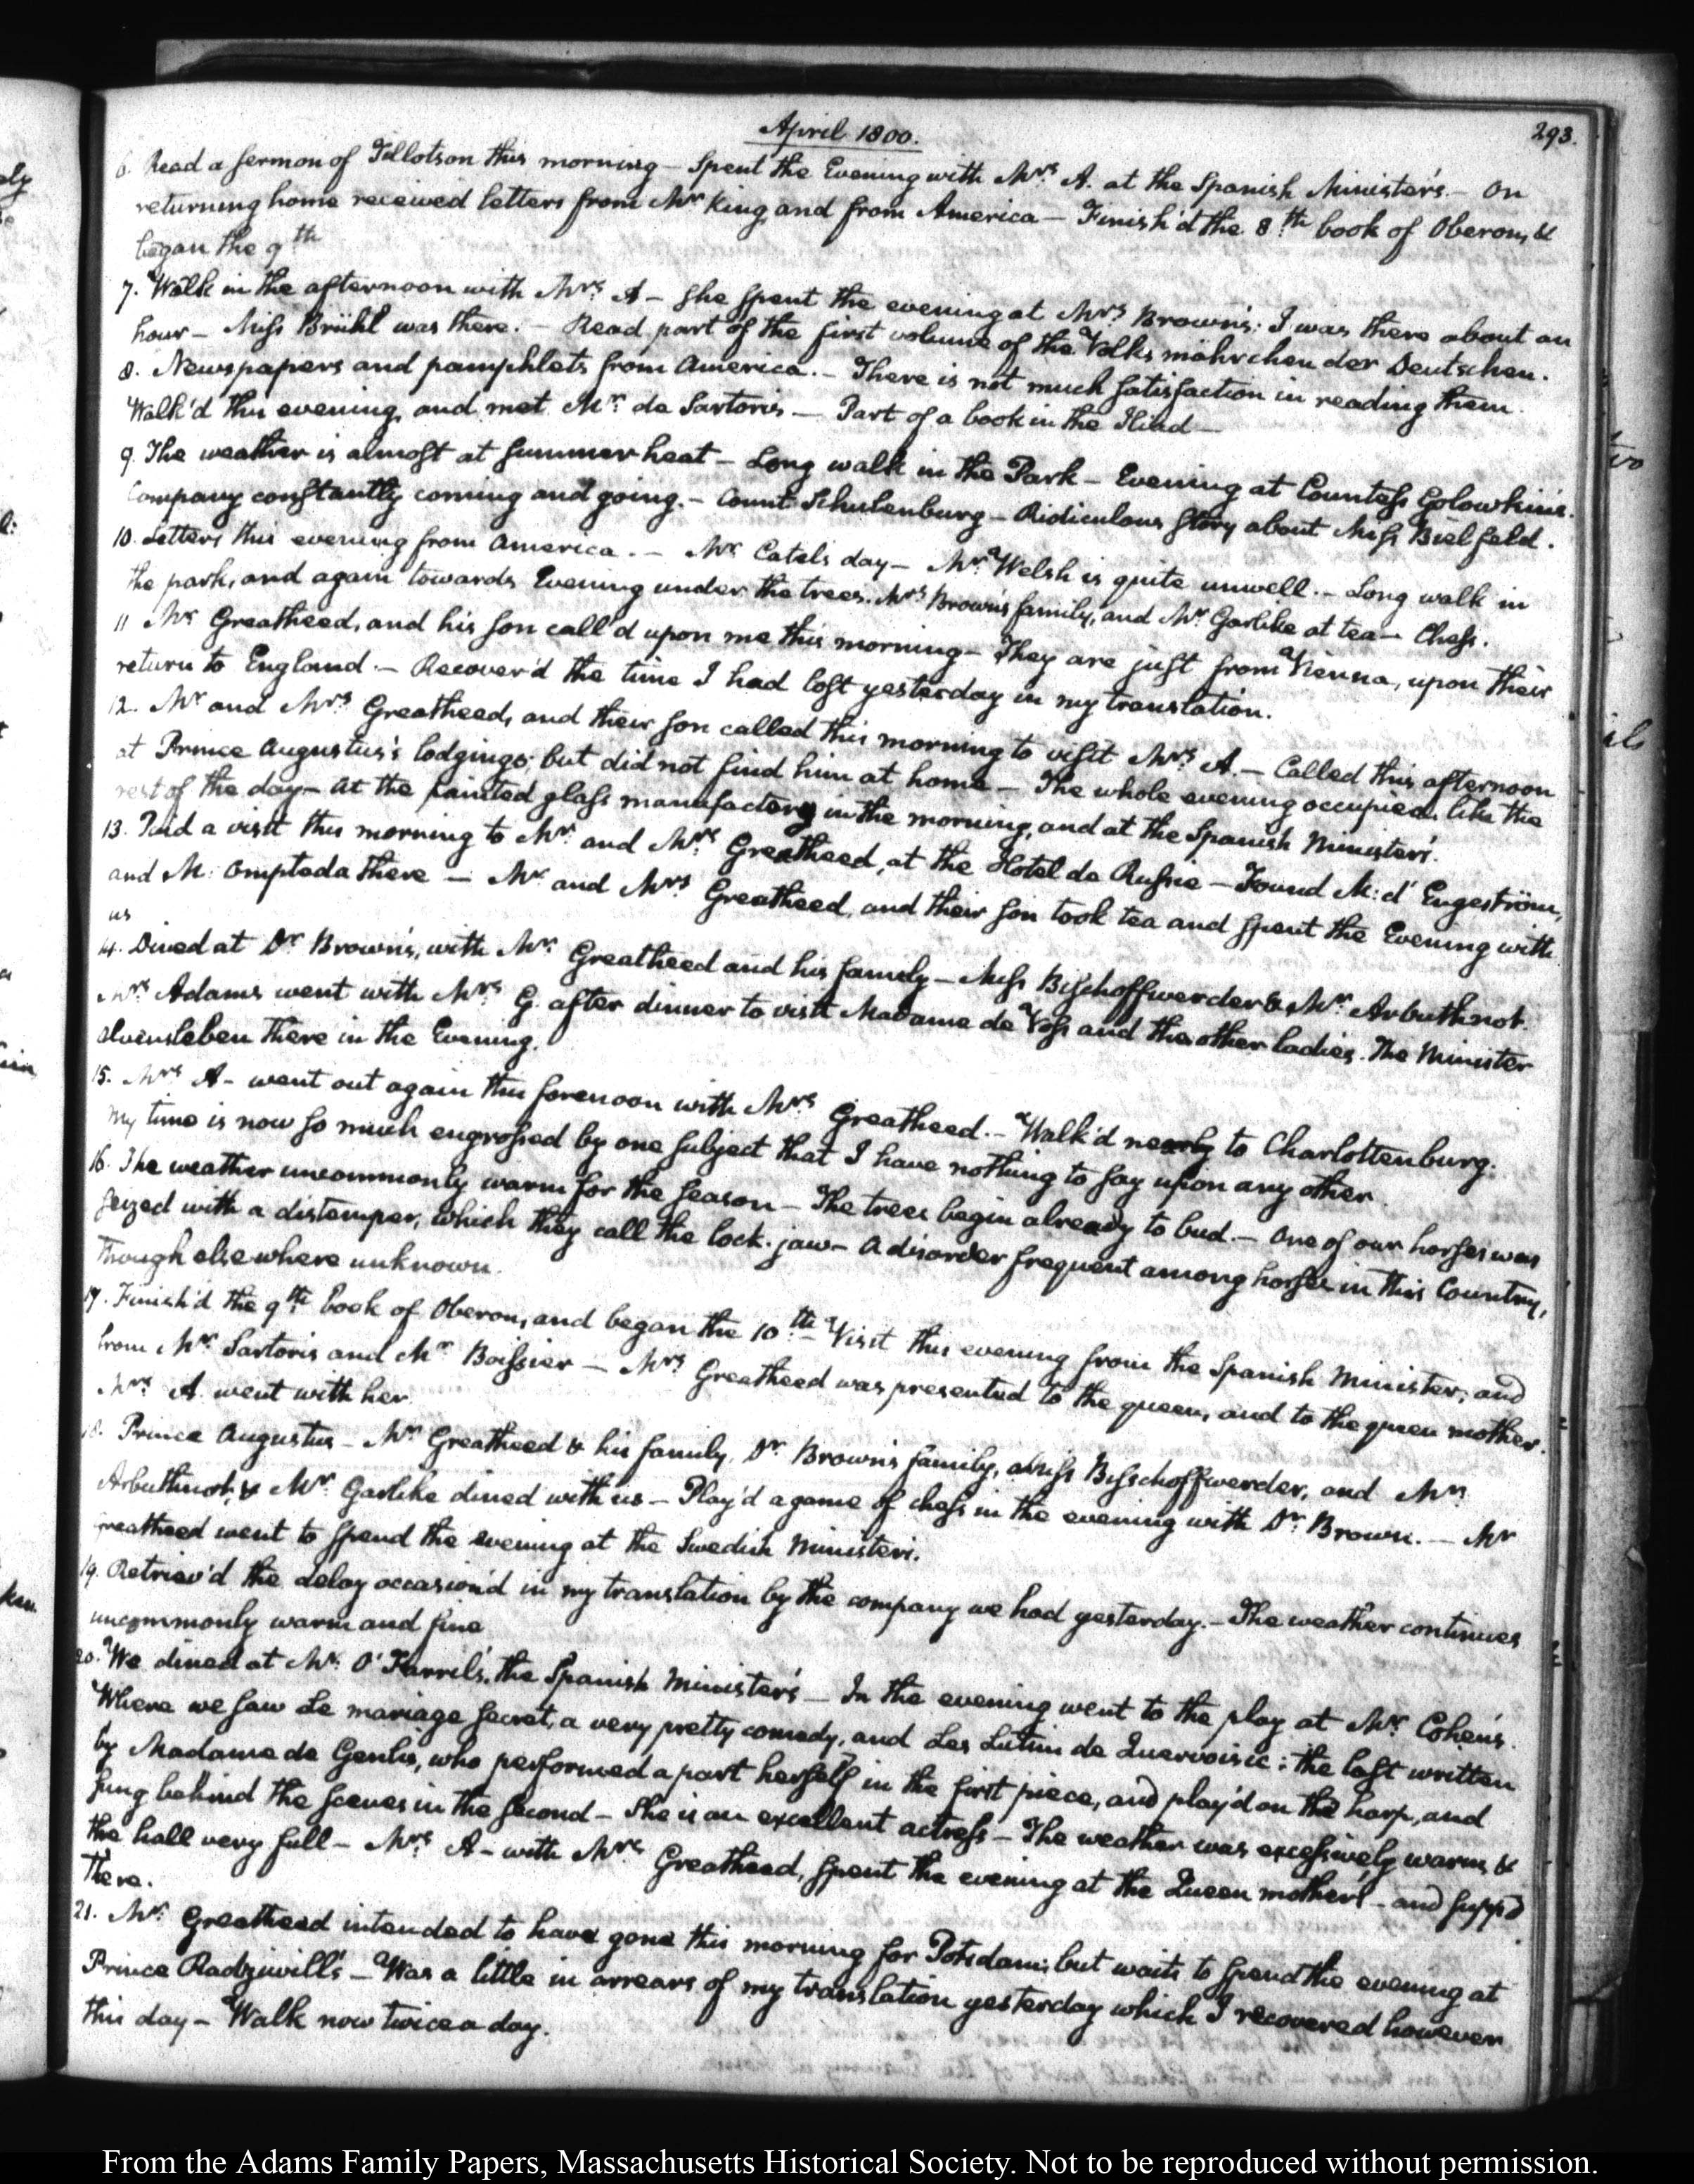 April 1800.
293.
6. Read a sermon of Tillotson this morning — Spent the Evening with Mrs. A. at the Spanish Minister's. — On
returning home received letters from Mr King and from America — Finish'd the 8th. book of Oberon, &
began the 9th
7. Walk in the afternoon with Mrs. A — She spent the evening at Mrs. Brown's: I was there about an
hour — Miss Brühl was there. — Read part of the first volume of the Volks mährchen der Deutschen.
8. Newspapers and pamphlets from America. — There is not much satisfaction in reading them.
Walk'd this evening, and met Mr. de Sartoris — Part of a book in the Iliad —
9. The weather is almost at summer heat — Long walk in the Park — Evening at Countess Golowkin's.
Company constantly coming and going. — Count Schulenburg — Ridiculous story about Miss Bielfeld.
10. Letters this evening from America. — Mr. Catel's day — Mr. Welsh is quite unwell. — Long walk in
the park, and again towards Evening under the trees. Mrs. Brown's family, and Mr. Garlike at tea — Chess.
11 Mr. Greatheed, and his son call'd upon me this morning — They are just from Vienna, upon their
return to England. — Recover'd the time I had lost yesterday in my translation.
12. Mr and Mrs. Greatheed, and their son called this morning to visit Mrs. A. — Called this afternoon
at Prince Augustus's lodgings; but did not find him at home — The whole evening occupied, like the
rest of the day — At the painted glass manufactory in the morning, and at the Spanish Minister's.
13. Paid a visit this morning to Mr. and Mrs. Greatheed, at the Hotel de Russie — Found M: d'Engeström,
and M: Ompteda there — Mr. and Mrs Greatheed, and their son took tea and spent the Evening with
us
14. Dined at Dr. Brown's, with Mr. Greatheed and his family — Miss Bischoffwerder & Mr. Arbuthnot.
Mrs. Adams went with Mrs. G. after dinner to visit Madame de Voss and the other ladies. The Minister
Alvensleben there in the Evening.
15. Mrs. A — went out again this forenoon with Mrs. Greatheed. — Walk'd nearly to Charlottenburg.
My time is now so much engrossed by one subject that I have nothing to say upon any other.
16. The weather uncommonly warm for the season — The trees begin already to bud. — One of our horses was
seized with a distemper, which they call the lock-jaw — A disorder frequent among horses in this Country,
though elsewhere unknown.
17. Finish'd the 9th. book of Oberon, and began the 10th. — Visit this evening from the Spanish Minister, and
from Mr. Sartoris and Mr. Boissier — Mrs. Greatheed was presented to the queen, and to the queen mother.
Mrs. A. went with her.
18. Prince Augustus — Mr. Greatheed & his family, Dr. Brown's family, Miss Bischoffwerder, and Mr.
Arbuthnot, & Mr. Garlike dined with us — Play'd a game of chess in the evening with Dr. Brown. — Mr
Greatheed went to spend the evening at the Swedish Minister's.
19. Retriev'd the delay occasion'd in my translation by the company we had yesterday. — The weather continues
uncommonly warm and fine
20. We dined at Mr. O'Farril's, the Spanish Minister's — In the evening went to the play at Mr. Cohen's.
Where we saw Le mariage secret, a very pretty comedy, and Les Lutins de : the last written
by Madame de Genlis, who performed a part herself in the first piece, and play'd on the harp, and
sung behind the scenes in the second — She is an excellent actress — The weather was excessively warm &
the hall very full — Mrs. A — with Mrs. Greatheed, spent the evening at the Queen mother's — and supp'd
there.
21. Mr. Greatheed intended to have gone this morning for Potsdam, but waits to spend the evening at
Prince Radziwill's — Was a little in arrears of my translation yesterday which I recovered however
this day — Walk now twice a day.
From the Adams Family Papers, Massachusetts Historical Society. Not to be reproduced without permission.